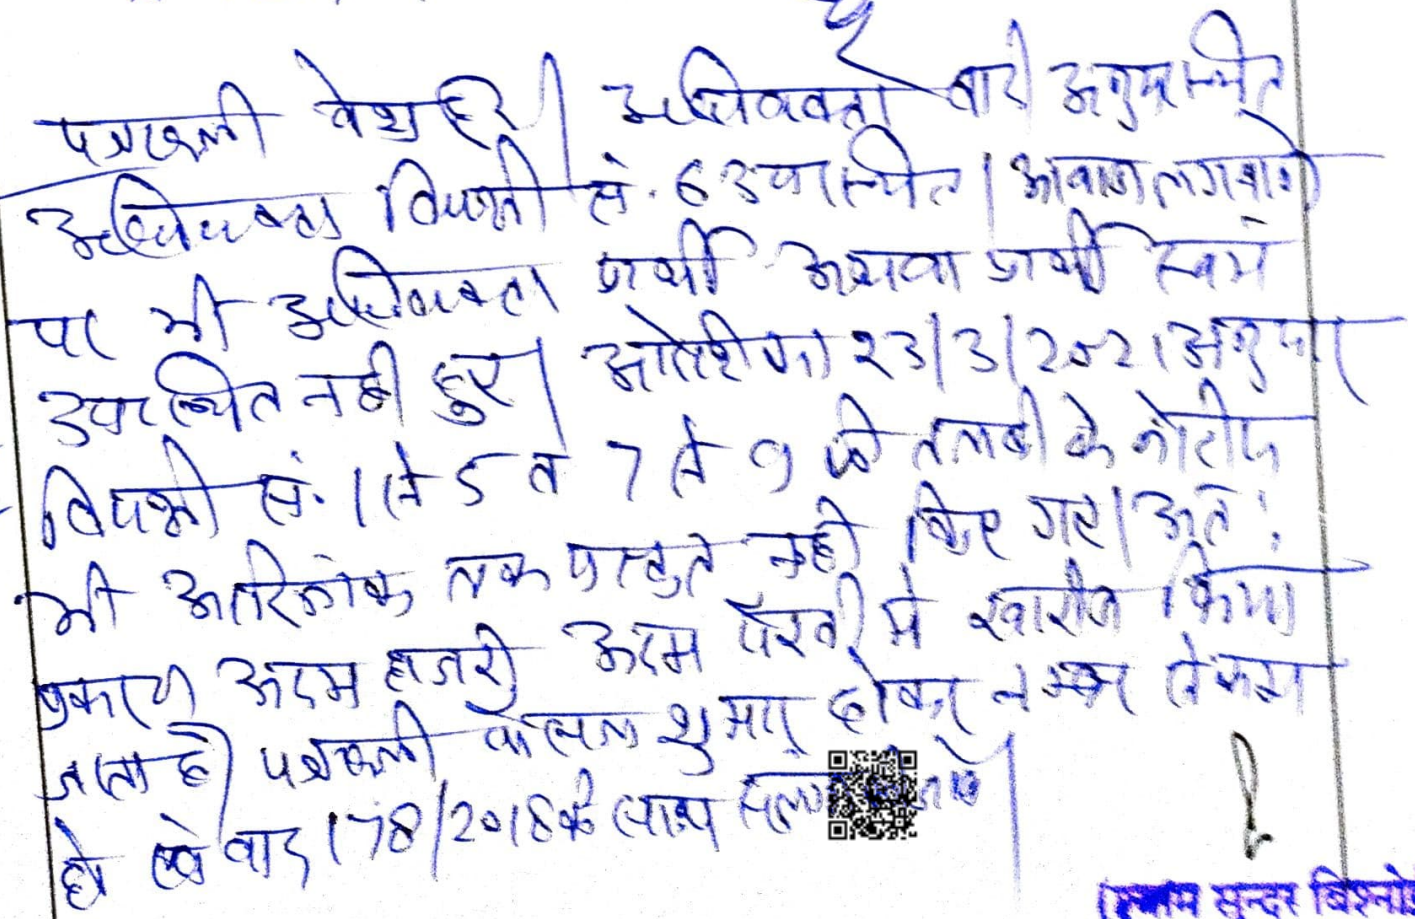 पत्रावली पेश हुई। अधिवक्ता वादी अनुपस्थित
अधिवक्ता विपक्षी सं. 6 उपस्थित। आवाज लगवाने
पर भी अधिवक्ता प्रार्थी अथवा प्रार्थी स्वयं
उपस्थित नहीं हुए। आदेशिका 23/3/2021 अनुसार
विपक्षी सं. 1 से 5 व 7 से 9 की तलबी के नोटिस
भी आदिनांक तक प्रस्तुत नहीं किए गए। अतः
प्रकरण अदम हाजरी अदम पैरवी में खारीज किया
जाता है। पत्रावली फैसल शुमार होकर नम्बर से कम
हो एवं वाद 178/2018 के साथ संलग्न
श्याम सुन्दर बिश्नोई